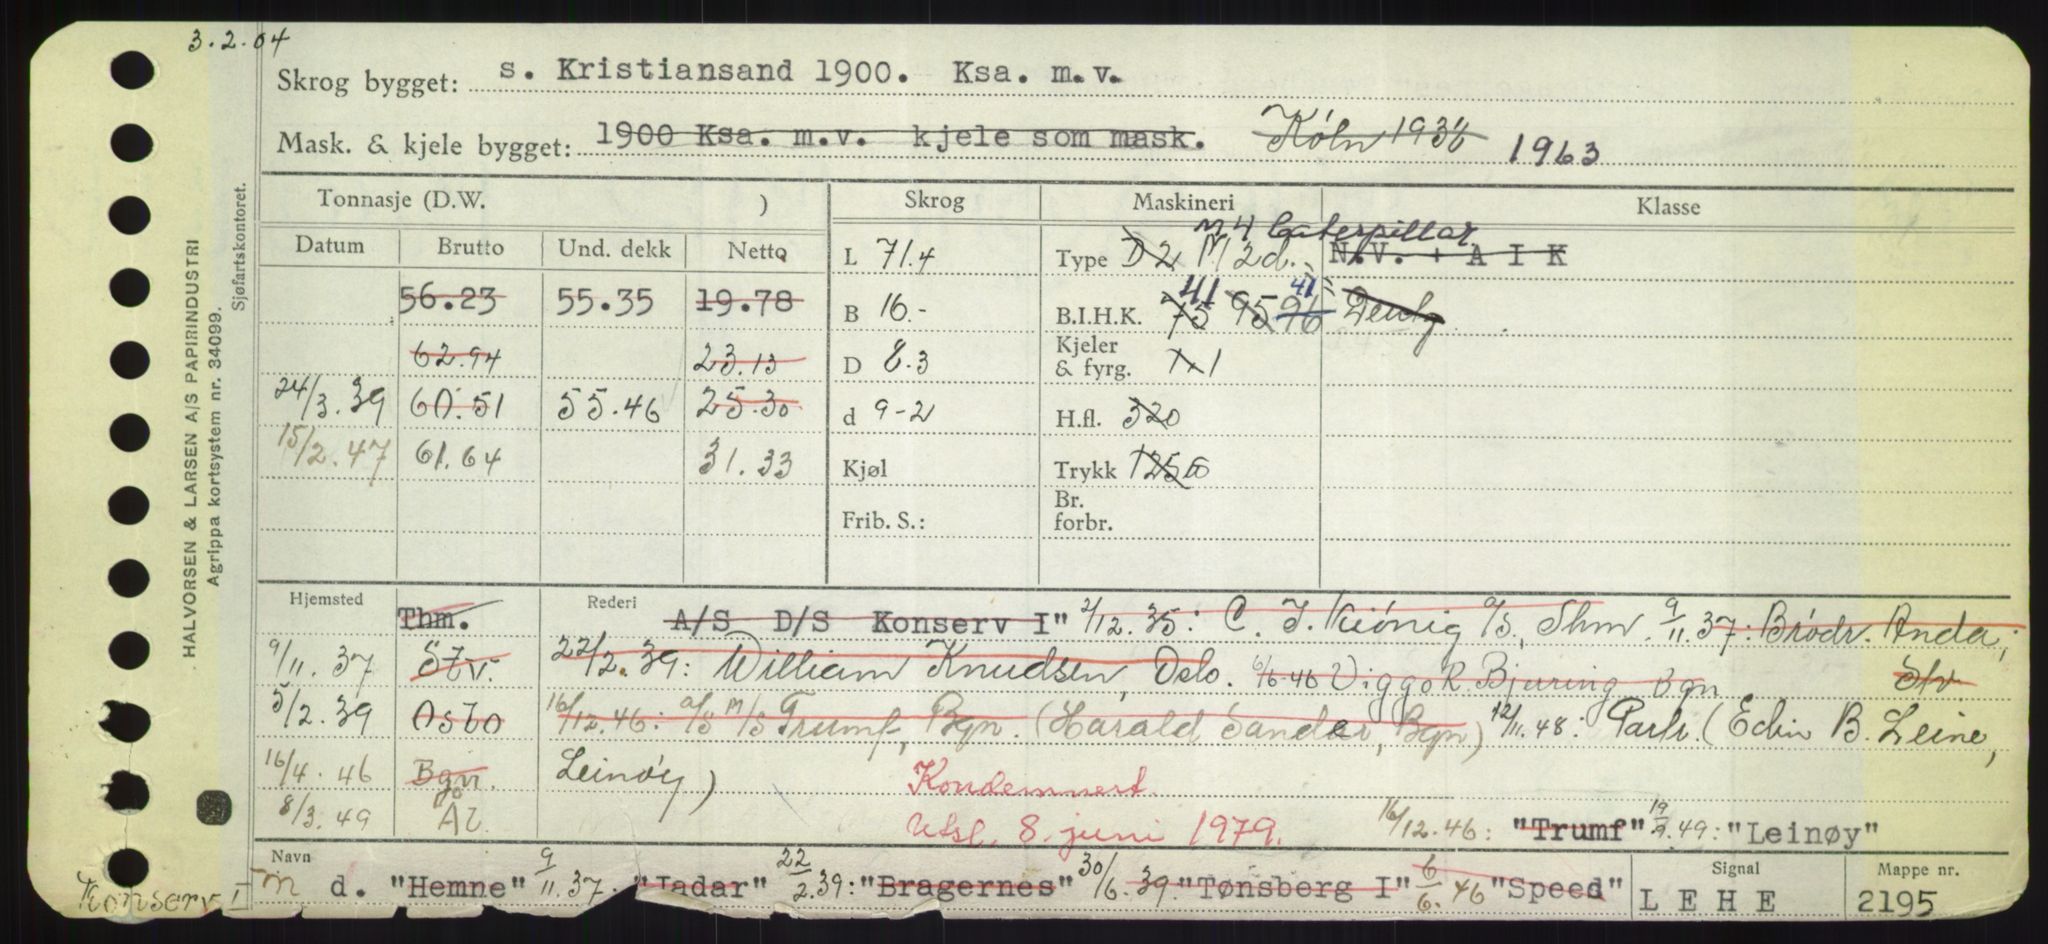 3.2.04
Skrog bygget: s. Kristiansand 1900. Ksa. m.v.
Mask. & kjele bygget: 1900 Ksa. m.v. kjele som mask. Köln 1936 1963
Tonnasje (D.W. ) Skrog Maskineri Klasse
Datum Brutto Und. dekk Netto
L 71.4
M 4 Caterpillar
Type D 2 M 2 d. N.V. + A I K
56.23 55.35 19.78
B 16.-
41 41
B.I.H.K. 75 95 96 Deutz
62.94 23.13
D 8.3
Kjeler & fyrg. 1 x 1
24/3.39 60.51 55.46 25.30
d 9-2
H.fl. 320
15/2.47 61.64 31.33
Kjøl
Trykk 125
Frib. S.:
Br. forbr.
Hjemsted Thm. Rederi A/S D/S Konserv I" 2/12.35: C. J. Kiönig A/S, Thm. 9/11.37: Brödr. Anda;
9/11.37 Stv. 22/2.39: William Knudsen, Oslo. 6/6.46 Viggo R. Bjuring Bgn Stv.
3/2.39 Oslo 16/12.46: A/S M/S Trumf, Bgn. (Harald Sander, Bgn) 12/11.48: Partr. (Edin B. Leine,
16/4.46 Bgn. Leinöy)
Kondemnert.
8/3.49 Ål.
Utsl. 8. juni 1979.
16/12.46: "Trumf" 19/9.49: "Leinøy"
Navn Signal Mappe nr.
m d. "Hemne" 9/11.37. "Jadar" 22/2.39: "Bragernes" 30/6.39. "Tønsberg I" 6/6.46 "Speed" L E H E 2195
Konserv I
HALVORSEN & LARSEN A/S PAPIRINDUSTRI
Agrippa kortsystem nr. 34099.
Sjøfartskontoret.